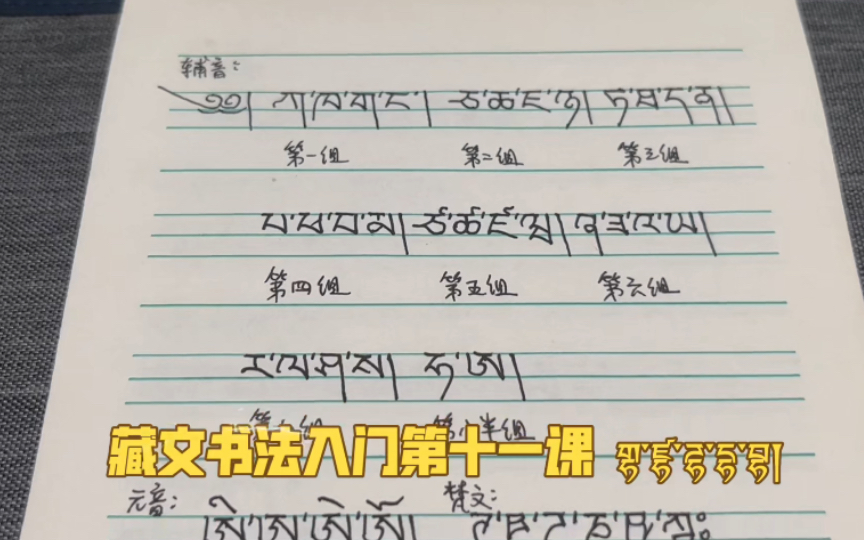 辅音:
༄༅། ཀ་ཁ་ག་ང་། ཅ་ཆ་ཇ་ཉ། ཏ་ཐ་ད་ན།
第一组 第二组 第三组
པ་ཕ་བ་མ། ཙ་ཚ་ཛ་ཝ། ཞ་ཟ་འ་ཡ།
第四组 第五组 第六组
ར་ལ་ཤ་ས། ཧ་ཨ།
半组
藏文书法入门第十一课
元音: 梵文: